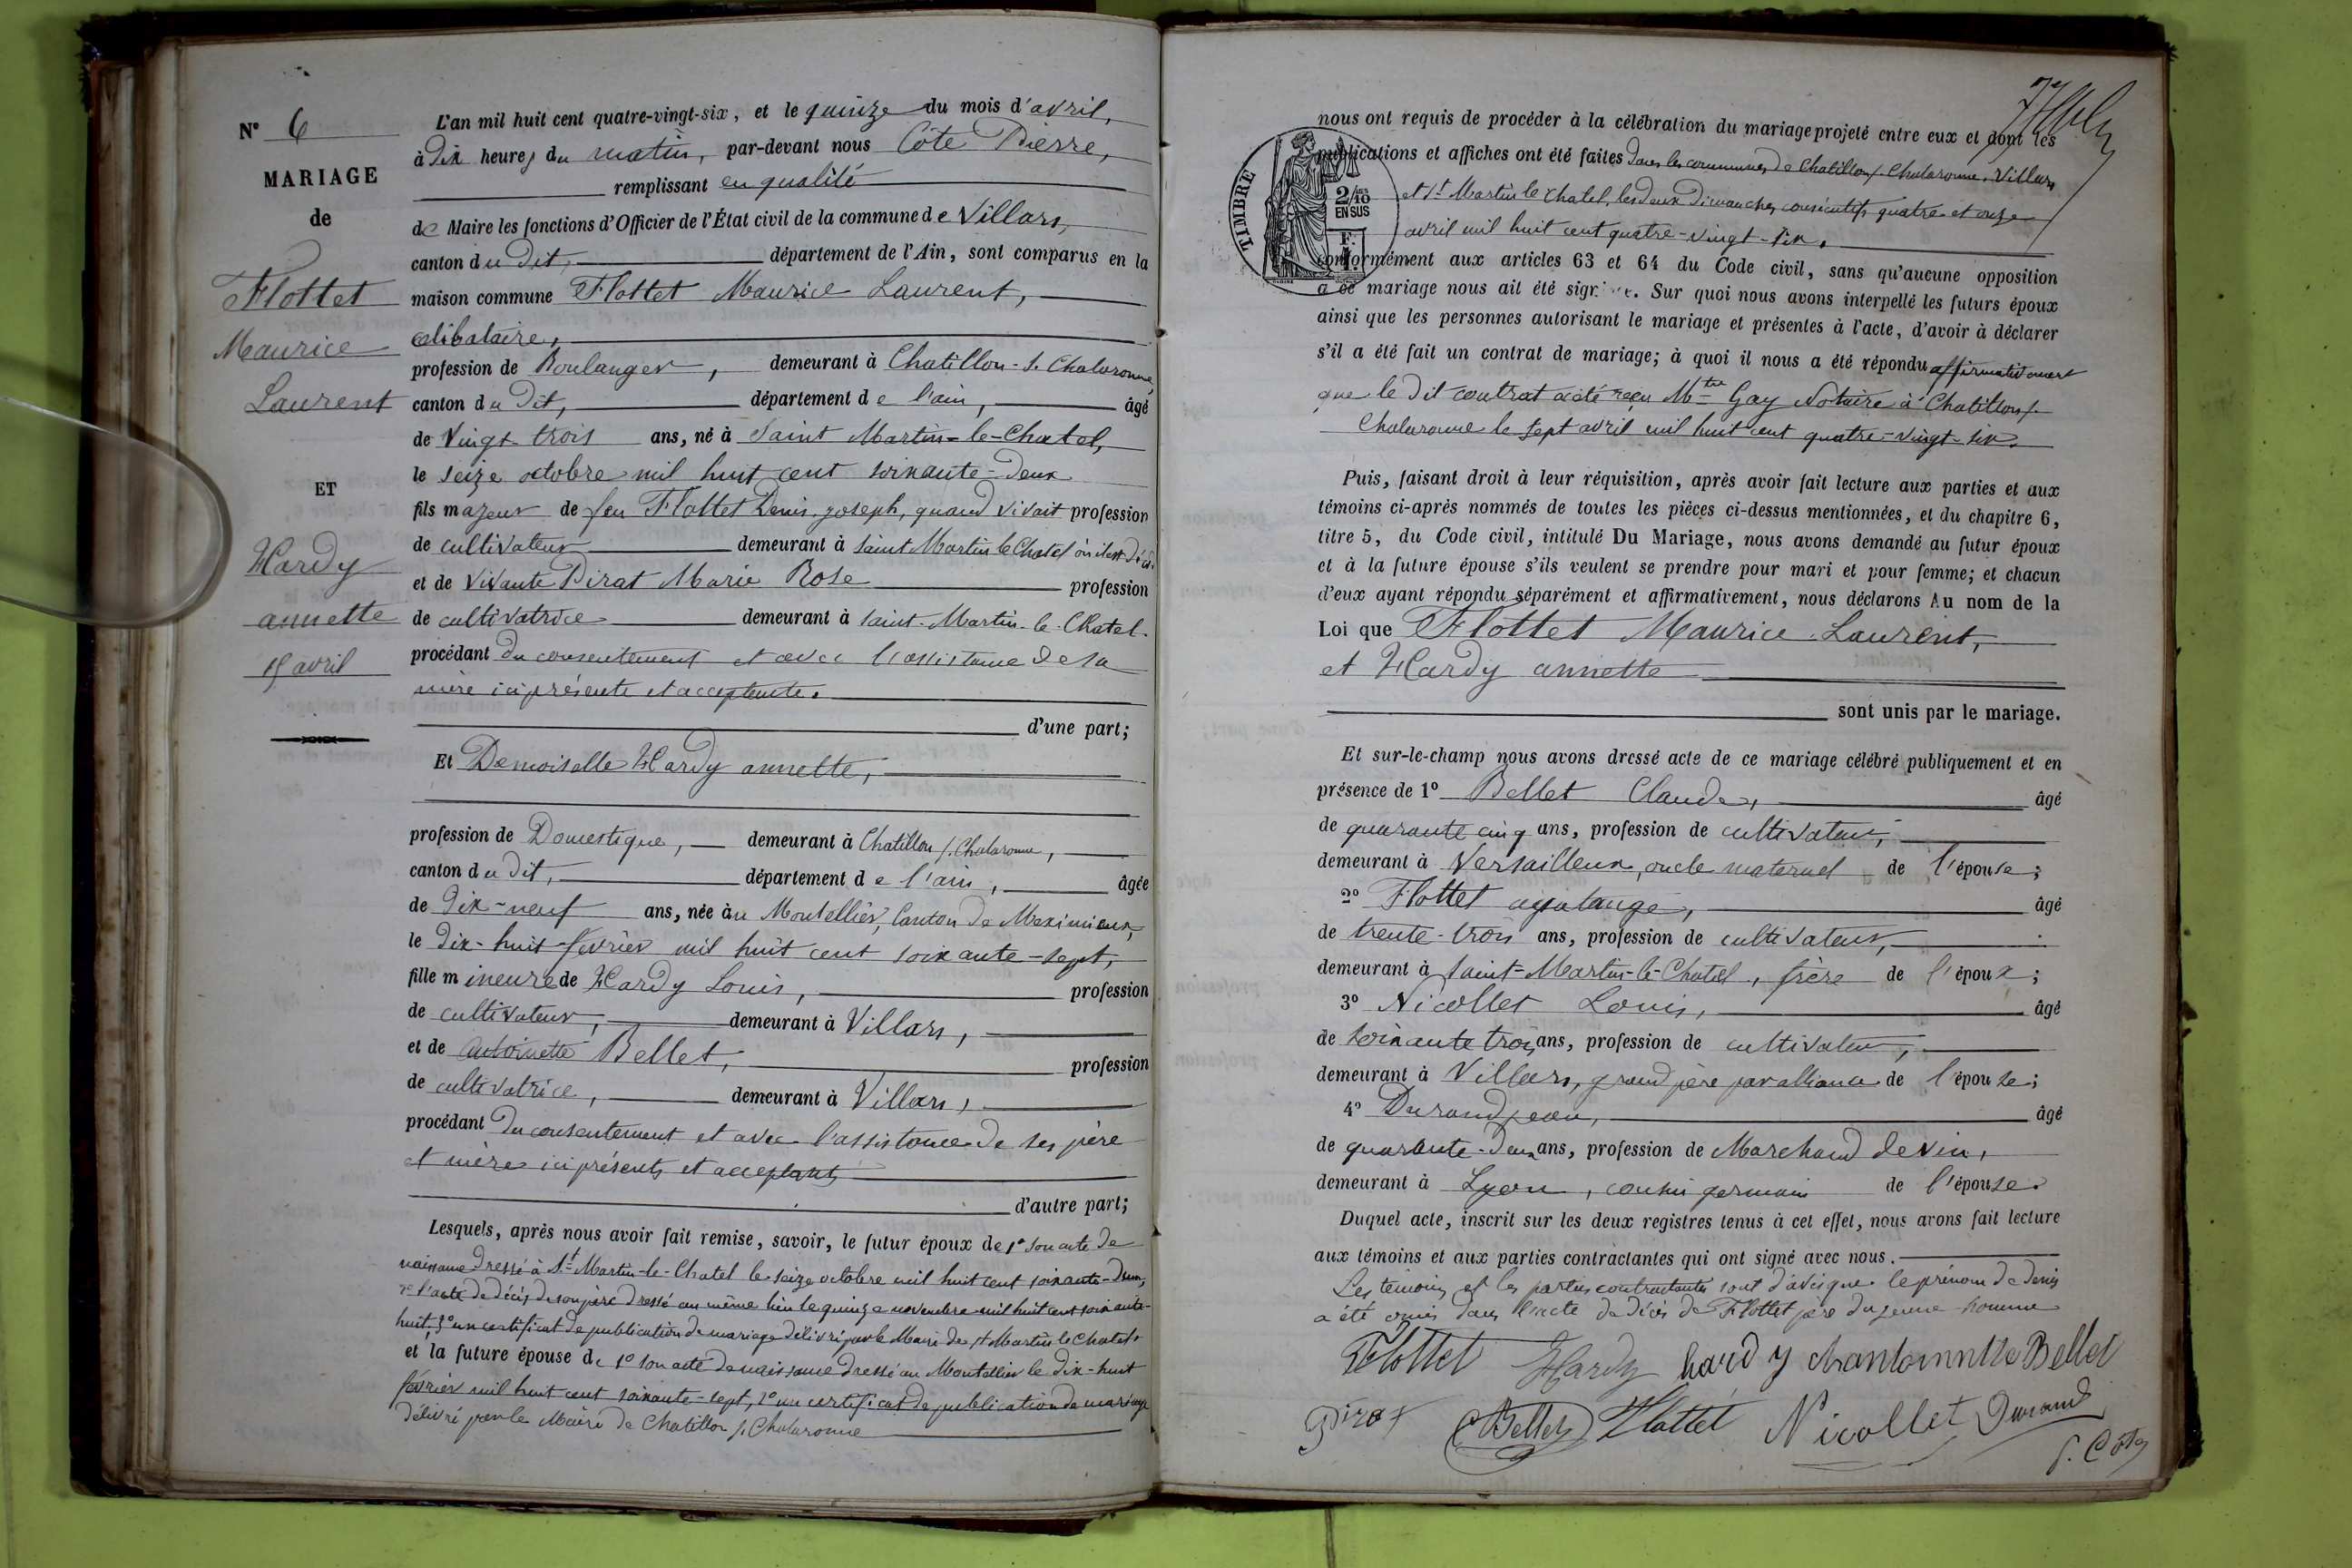 N° 6
MARIAGE
de
Flottet
Maurice
Laurent
ET
Hardy
annette
15 avril
L'an mil huit cent quatre-vingt-six, et le quinze du mois d'avril,
à Dix heures du matin, par-devant nous Côte Pierre,
remplissant en qualité
de Maire les fonctions d'Officier de l'État civil de la commune de Villars,
canton du dit, département de l'Ain, sont comparus en la
maison commune Flottet Maurice Laurent,
célibataire,
profession de Boulanger, demeurant à Chatillon-s. Chalaronne,
canton du Dit, département de l'ain, âgé
de Vingt trois ans, né à Saint Martin-le-Chatel,
le seize octobre mil huit cent soixante-deux
fils majeur de feu Flottet Denis joseph, quand vivait profession
de cultivateur demeurant à saint Martin le Chatel où il est décédé
et de vivante Pirat Marie Rose profession
de cultivatrice demeurant à saint-Martin-le-Chatel.
procédant du consentement et avec l'assistance de sa
mère ici présente et acceptante.
d'une part;
Et Demoiselle Hardy annette,
profession de Domestique, demeurant à Chatillon s. Chalaronne,
canton du dit, département de l'ain, âgée
de dix-neuf ans, née au Montellier, Canton de Meximieux,
le dix-huit février mil huit cent soixante-sept,
fille mineure de Hardy Louis, profession
de cultivateur, demeurant à Villars,
et de antoinette Bellet, profession
de cultivatrice, demeurant à Villars,
procédant du consentement et avec l'assistance de ses père
et mère ici présents et acceptants
d'autre part;
Lesquels, après nous avoir fait remise, savoir, le futur époux de 1° son acte de
naissance dressé à St Martin-le-Chatel le seize octobre mil huit cent soixante-deux,
2° l'acte de décès de son père dressé au même lieu le quinze novembre mil huit cent soixante-
huit, 3° un certificat de publication de mariage délivré par le Maire de St Martin le Chatel.
et la future épouse de 1° son acte de naissance dressé au Montellier le dix-huit
février mil huit cent soixante-sept, 2° un certificat de publication de mariage
délivré par le Maire de Chatillon s. Chalaronne
nous ont requis de procéder à la célébration du mariage projeté entre eux et dont les
publications et affiches ont été faites dans les communes de Chatillon s. Chalaronne, Villars
et St Martin le Chatel, les deux Dimanches consécutifs quatre et onze
avril mil huit cent quatre-vingt-six.
TIMBRE
2/10
EN SUS
F.
conformément aux articles 63 et 64 du Code civil, sans qu'aucune opposition
à ce mariage nous ait été signifiée. Sur quoi nous avons interpellé les futurs époux
ainsi que les personnes autorisant le mariage et présentes à l'acte, d'avoir à déclarer
s'il a été fait un contrat de mariage; à quoi il nous a été répondu affirmativement
que le dit contrat a été reçu Mtre Gay Notaire à Chatillon s.
Chalaronne le sept avril mil huit cent quatre-vingt-six.
Puis, faisant droit à leur réquisition, après avoir fait lecture aux parties et aux
témoins ci-après nommés de toutes les pièces ci-dessus mentionnées, et du chapitre 6,
titre 5, du Code civil, intitulé Du Mariage, nous avons demandé au futur époux
et à la future épouse s'ils veulent se prendre pour mari et pour femme; et chacun
d'eux ayant répondu séparément et affirmativement, nous déclarons Au nom de la
Loi que Flottet Maurice Laurent,
et Hardy annette
sont unis par le mariage.
Et sur-le-champ nous avons dressé acte de ce mariage célébré publiquement et en
présence de 1° Bellet Claude, âgé
de quarante cinq ans, profession de cultivateur,
demeurant à Versailleux, oncle maternel de l'épouse;
2° Flottet âgé
de trente-trois ans, profession de cultivateur,
demeurant à saint-Martin-le-Chatel, frère de l'époux;
3° Nicollet Louis, âgé
de soixante trois ans, profession de cultivateur,
demeurant à Villars, grand père par alliance de l'épouse;
4° Durand jean, âgé
de quarante-deux ans, profession de Marchand de vin,
demeurant à Lyon, cousin germain de l'épouse.
Duquel acte, inscrit sur les deux registres tenus à cet effet, nous avons fait lecture
aux témoins et aux parties contractantes qui ont signé avec nous.
Les témoins et les parties contractantes sont d'avis que le prénom de denis
a été omis dans l'acte de décès de Flottet père du jeune homme
Flottet Hardy hardy Bellet
Pirat Bellet Flottet Nicollet Durand
P. Côte